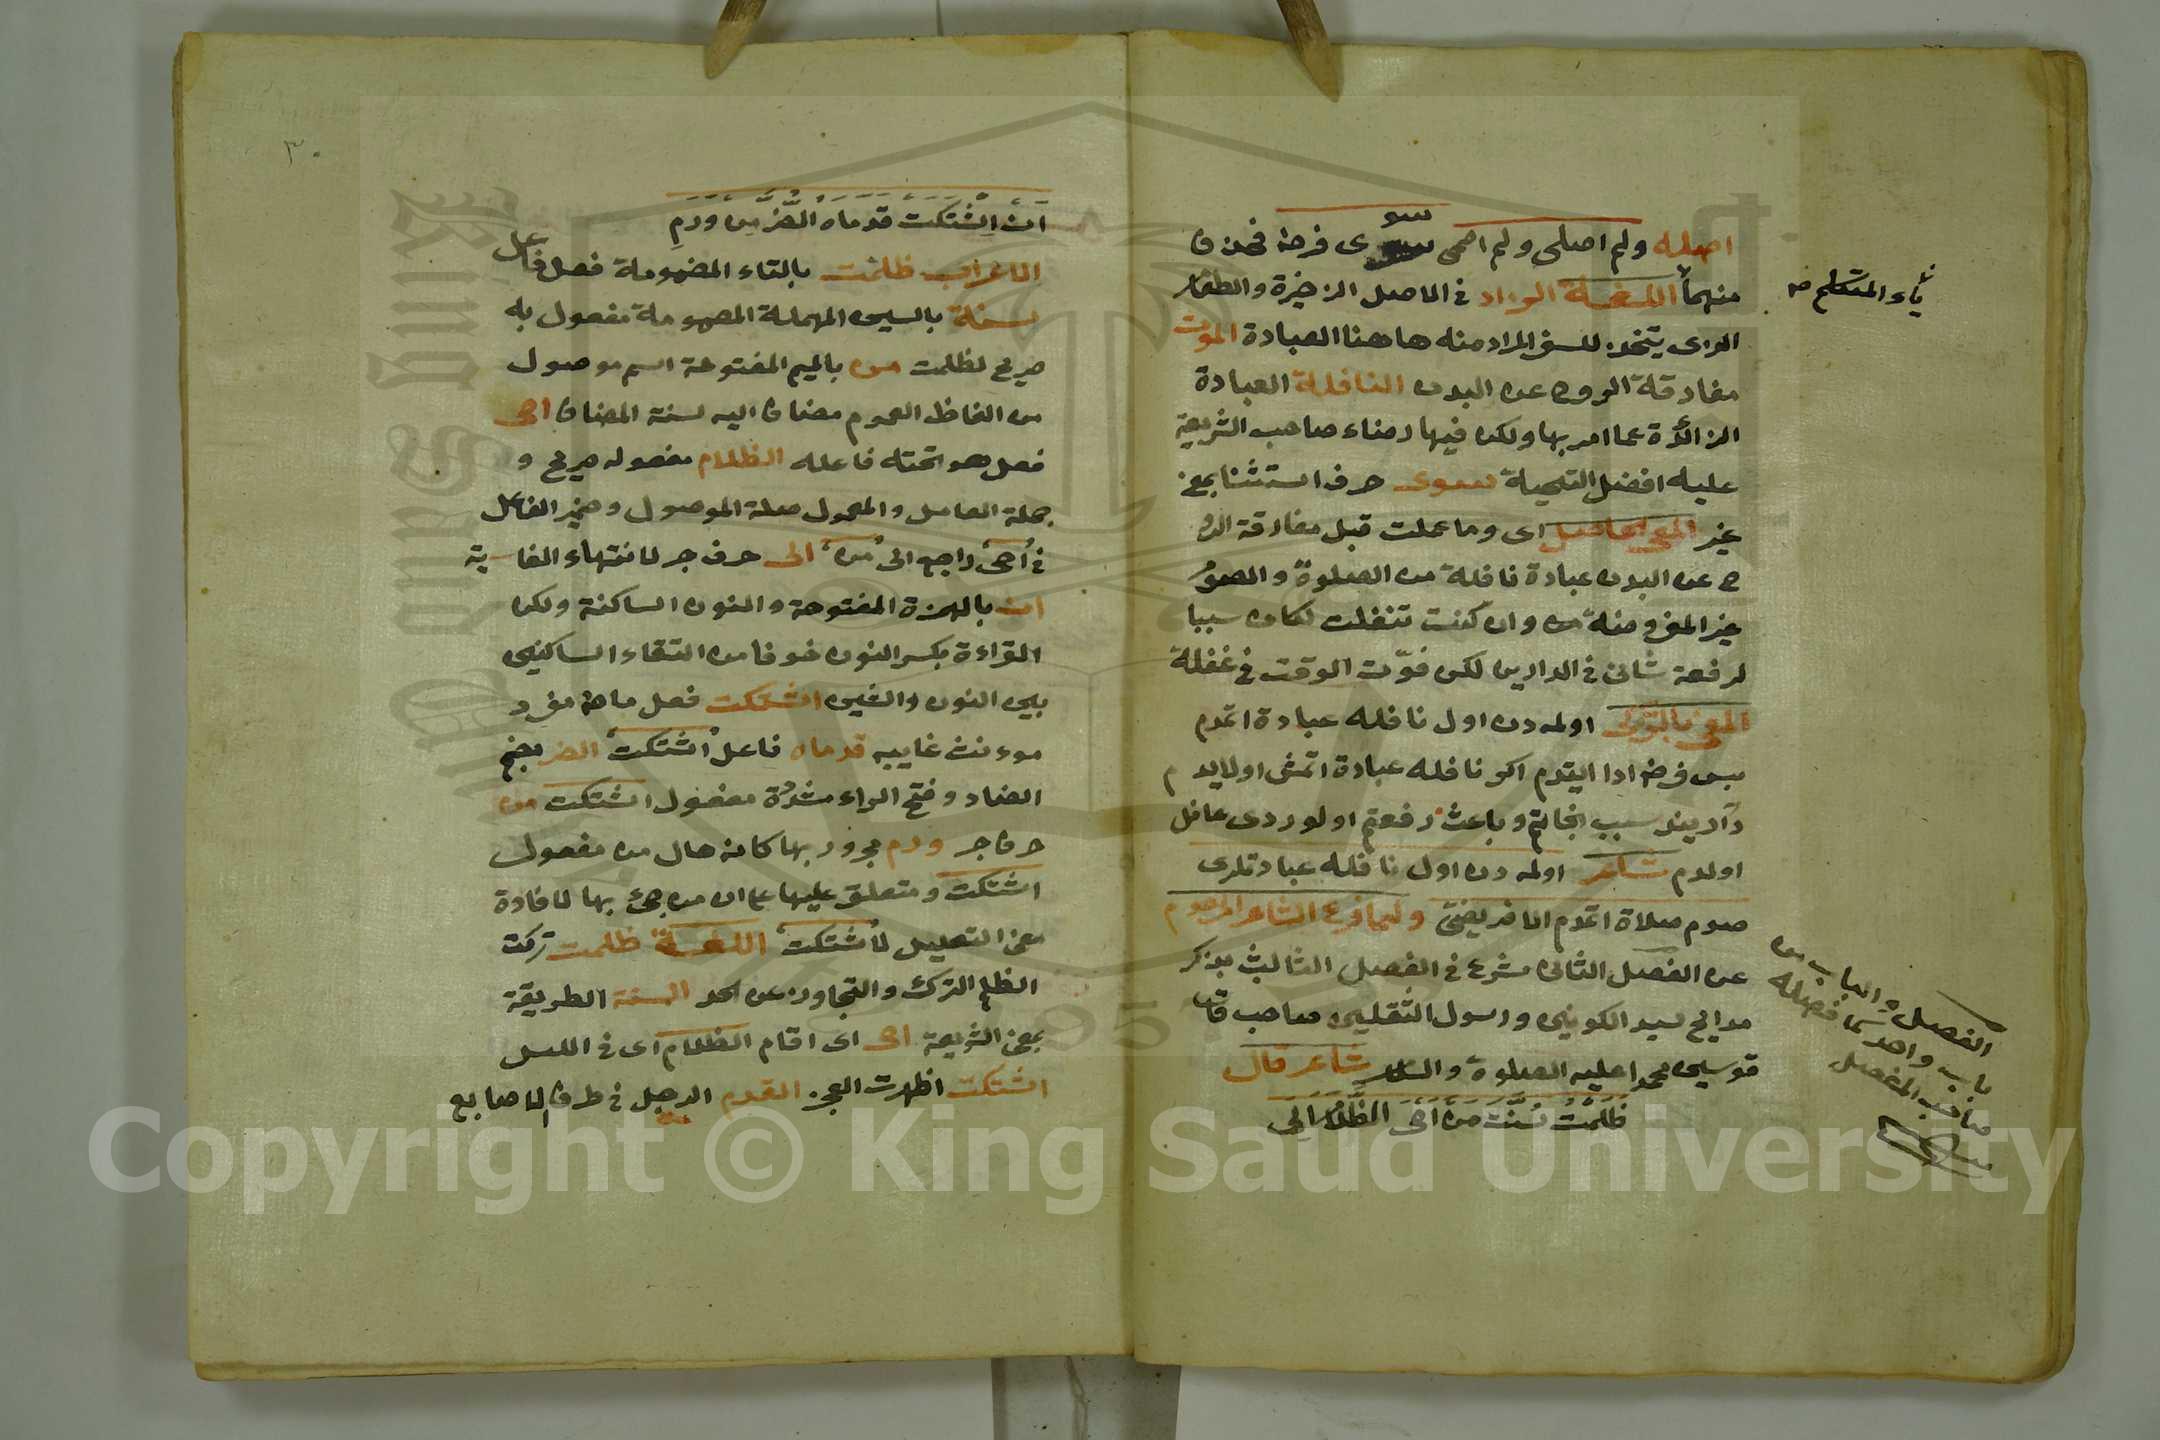 اصله ولم اصلى ولم اصم سوى فرض فحذف
منهما اللغة الزاد فى الاصل الزخيرة والطعام
الذى يتخذ للسفر المراد منه هاهنا العبادة الموت
مفارقة الروح عن البدن النافلة العبادة
الزائدة عما امر بها ولكن فيها رضاء صاحب الشريعة
عليه افضل التحية سوى حرف استثنا بمعنى
غير المعنى الحاصل اى وما عملت قبل مفارقة الرو
ح عن البدن عبادة نافلة من الصلوة والصوم
غير المفروضة من وان كنت تنفلت لكان سببا
لرفعة شانى فى الدارين لكن فوّت الوقت فى غفلة
المعنى بالتركى اولمدن اول نافله عبادة اتمدم
بس فرض ادا ايلدم اكر نافله عبادة اتمش اولايدم
دارينده سبب نجاتم وباعث رفعتم اولوردى غافل
اولدم شاعر اولمدن اول نافله عبادتلرى
صوم صلاة اتمدم الا فريضتى ولما فرغ الشاعر المرحوم
عن الفصل الثانى شرع فى الفصل الثالث بذكر
مدايح سيد الكونين ورسول الثقلين صاحب قاب
قوسين محمد عليه الصلوة والسلام شاعر قال
ظَلَمْتُ سُنَّتَ مَنْ اَحْىَ الظَّلَامَ اِلَى
ياء المتكلم صح
الفصل والباب من
باب واحد كما فصله
صاحب المفصل
٣٠
اَنِ اشْتَكَتْ قَدَمَاهُ الضُّرَّ مِنْ وَرَمِ
الاعراب ظلمت بالتاء المضمومة فعل فاعل
سنة بالسين المهملة المضمومة مفعول به
صريح لظلمت من بالميم المفتوحة اسم موصول
من الفاظ العموم مضاف اليه لسنة المضاف احى
فعل هو تحته فاعله الظلام مفعوله صريح و
جملة العامل والمعمول صلة الموصول وضمير الفاعل
فى احى راجع الى من الى حرف جر لانتهاء الغاية
ان بالهمزة المفتوحة والنون الساكنة ولكن
القراءة بكسر النون خوفا من التقاء الساكنين
بين النون والشين اشتكت فعل ماض مفرد
موءنث غايبه قدماه فاعل اشتكت الضر بضم
الضاد وفتح الراء مشددة مفعول اشتكت من
حرف جر ورم مجرور بها كائن حال من مفعول
اشتكت ومتعلق عليها على ان من جئ بها لافادة
معنى التعليل لاشتكت اللغة ظلمت تركت
الظلم الترك والتجاوز عن الحد السنة الطريقة
بمعنى الشريعة احى اى اقام الظلام اى فى الليل
اشتكت اظهرت العجز القدم الرجل فى طرف الاصابع
Copyright © King Saud University